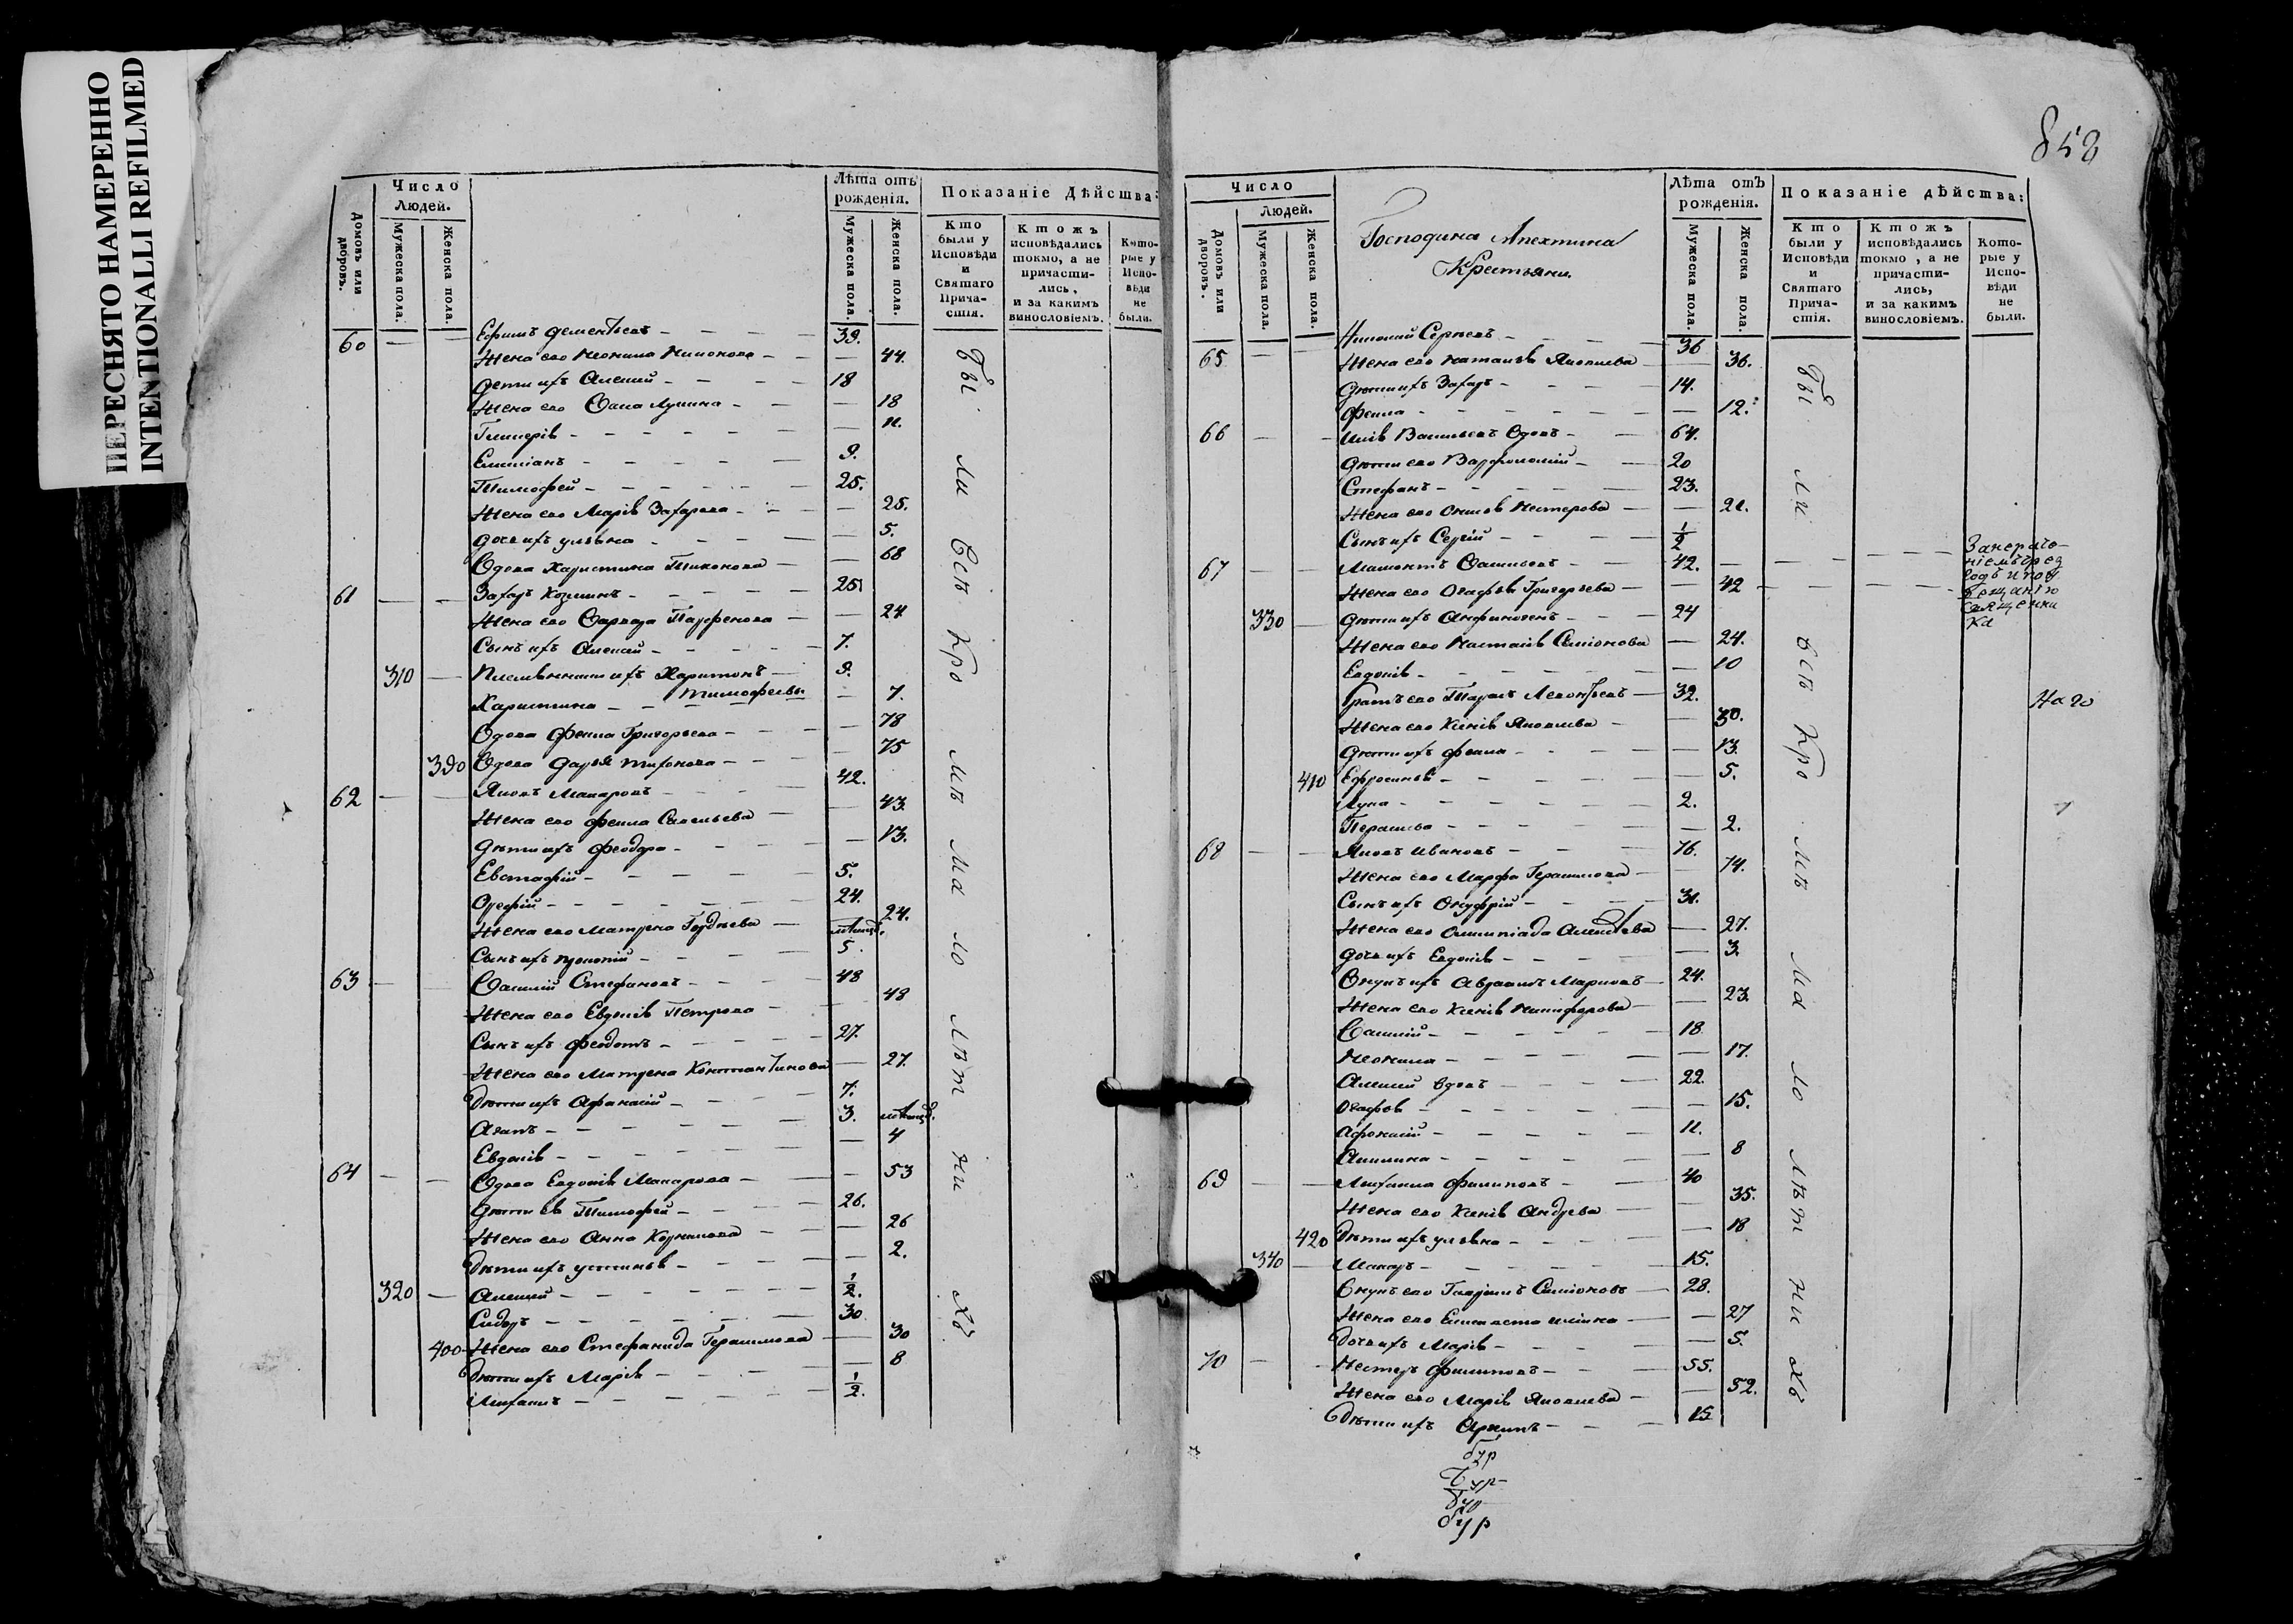 ПЕРЕСНЯТО НАМЕРЕННО
INTENTIONALLI REFILMED
Число
Людей.
Домовъ или дворовъ.
Мужеска пола.
Женска пола.
Лѣта отъ рожденія.
Мужеска пола.
Женска пола.
Показаніе Дѣйства:
Кто были у Исповѣди и Святаго Причастія.
Ктожъ исповѣдались токмо, а не причастились, и за какимъ винословіемъ.
Которые у Исповѣди не были.
60 Ефимъ Дементьевъ 39.
Жена его Неонила 44.
Дети ихъ Алексей 18
Жена его 18
Гликерія 11.
Емиліанъ 9.
Тимофей 25.
Жена его Марія Захарова 25.
Дочь ихъ Ульяна 5.
Вдова Харистина 68
61 Захаръ Козминъ 25
Жена его Варвара Парфенова 24
Сынъ ихъ Алексей 7.
310 Племянники ихъ Харитонъ 9.
Тимофеевы
Харистина 7.
Вдова Фекла Григорьева 78
390 Вдова Дарья Тихонова 75
62 Яковъ Макаровъ 42.
Жена его Фекла Савельева 43.
Дѣти ихъ Феодора 13.
Евстафій 5.
Орефій 24.
Жена его Матрена Гордѣева 24.
Сынъ ихъ Прокопій 5.
63 Василій Стефановъ 48
Жена его Евдокія Петрова 48
Сынъ ихъ Феодотъ 27.
Жена его Матрена Константинова 27.
Дѣти ихъ Афанасій 7.
Агапъ 3.
Евдокія 4
64 Вдова Евдокія Макарова 53
Дѣти ея Тимофей 26.
Жена его Анна Корнилова 26
Дѣти ихъ Устинья 2.
320 Алексей 1/2.
Сидоръ 30
400 Жена его Стефанида Герасимова 30
Дѣти ихъ Марія 8
Михаилъ 1/2.
бы
ли
Всѣ
Кро
мѣ
ма
ло
лѣт
ни
хъ
858
Число
Людей.
Домовъ или дворовъ.
Мужеска пола.
Женска пола.
Господина Апехтина
Крестьяни
Лѣта отъ рожденія.
Мужеска пола.
Женска пола.
Показаніе дѣйства:
Кто были у Исповѣди и Святаго Причастія.
Ктожъ исповѣдались токмо, а не причастились, и за какимъ винословіемъ.
Которые у Исповѣди не были.
65 Николай Сергеевъ 36
Жена его Наталья Яковлева 36.
Дѣти ихъ Захаръ 14.
Фекла 12.
66 Илія Васильевъ Вдовъ 64.
Дѣти его Варфоломей 20
Стефанъ 23.
Жена его Нестерова 21.
Сынъ ихъ Сергій 1/2
67 Мамонтъ 42.
Жена его Агафья Григорьева 42
330 Дѣти ихъ Анфиногенъ 24
Жена его Настасія Симонова 24.
Евдокія 10
Братъ его Тарасъ Леонтьевъ 32.
Жена его Ксенія Яковлева 30.
Дѣти ихъ Фекла 13.
410 Ефросинья 5.
Лука 2.
2.
68 Яковъ Ивановъ 76.
Жена его Марфа Герасимова 74.
Сынъ ихъ Онуфрій 31.
Жена его Олимпіада Алексѣева 27.
Дочь ихъ Евдокія 3.
Внукъ ихъ Авраамъ Марковъ 24.
Жена его Ксенія Никифорова 23.
Василій 18
Неонила 17.
Алексей Вдовъ 22.
Агафья 15.
Афонасій 11.
Акилина 8
69 Михаила Филиповъ 40
Жена его Ксенія Андрева 35.
420 Дѣти ихъ Ульяна 18
340 Макаръ 15.
Внукъ его Гавріилъ Симоновъ 28.
Жена его Елисавета Ильина 27
Дочь ихъ Марія 5.
70 Нестеръ Филиповъ 55.
Жена его Марія Яковлева 52.
Дѣти ихъ Архипъ 15
бы
ли
всѣ
Кро
мѣ
ма
ло
лѣт
ни
хъ